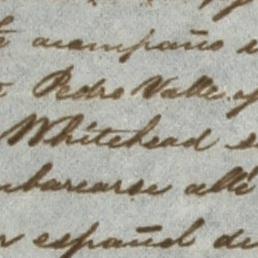 acompaño
Pedro Valle y
Whitehead
embarcarse allí
español de